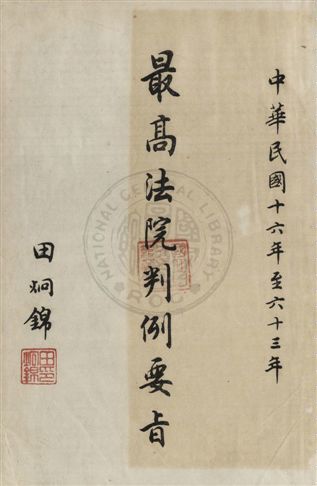 中華民國十六年至六十三年
最高法院判例要旨
田炯錦
田炯錦印
NATIONAL CENTRAL LIBRARY